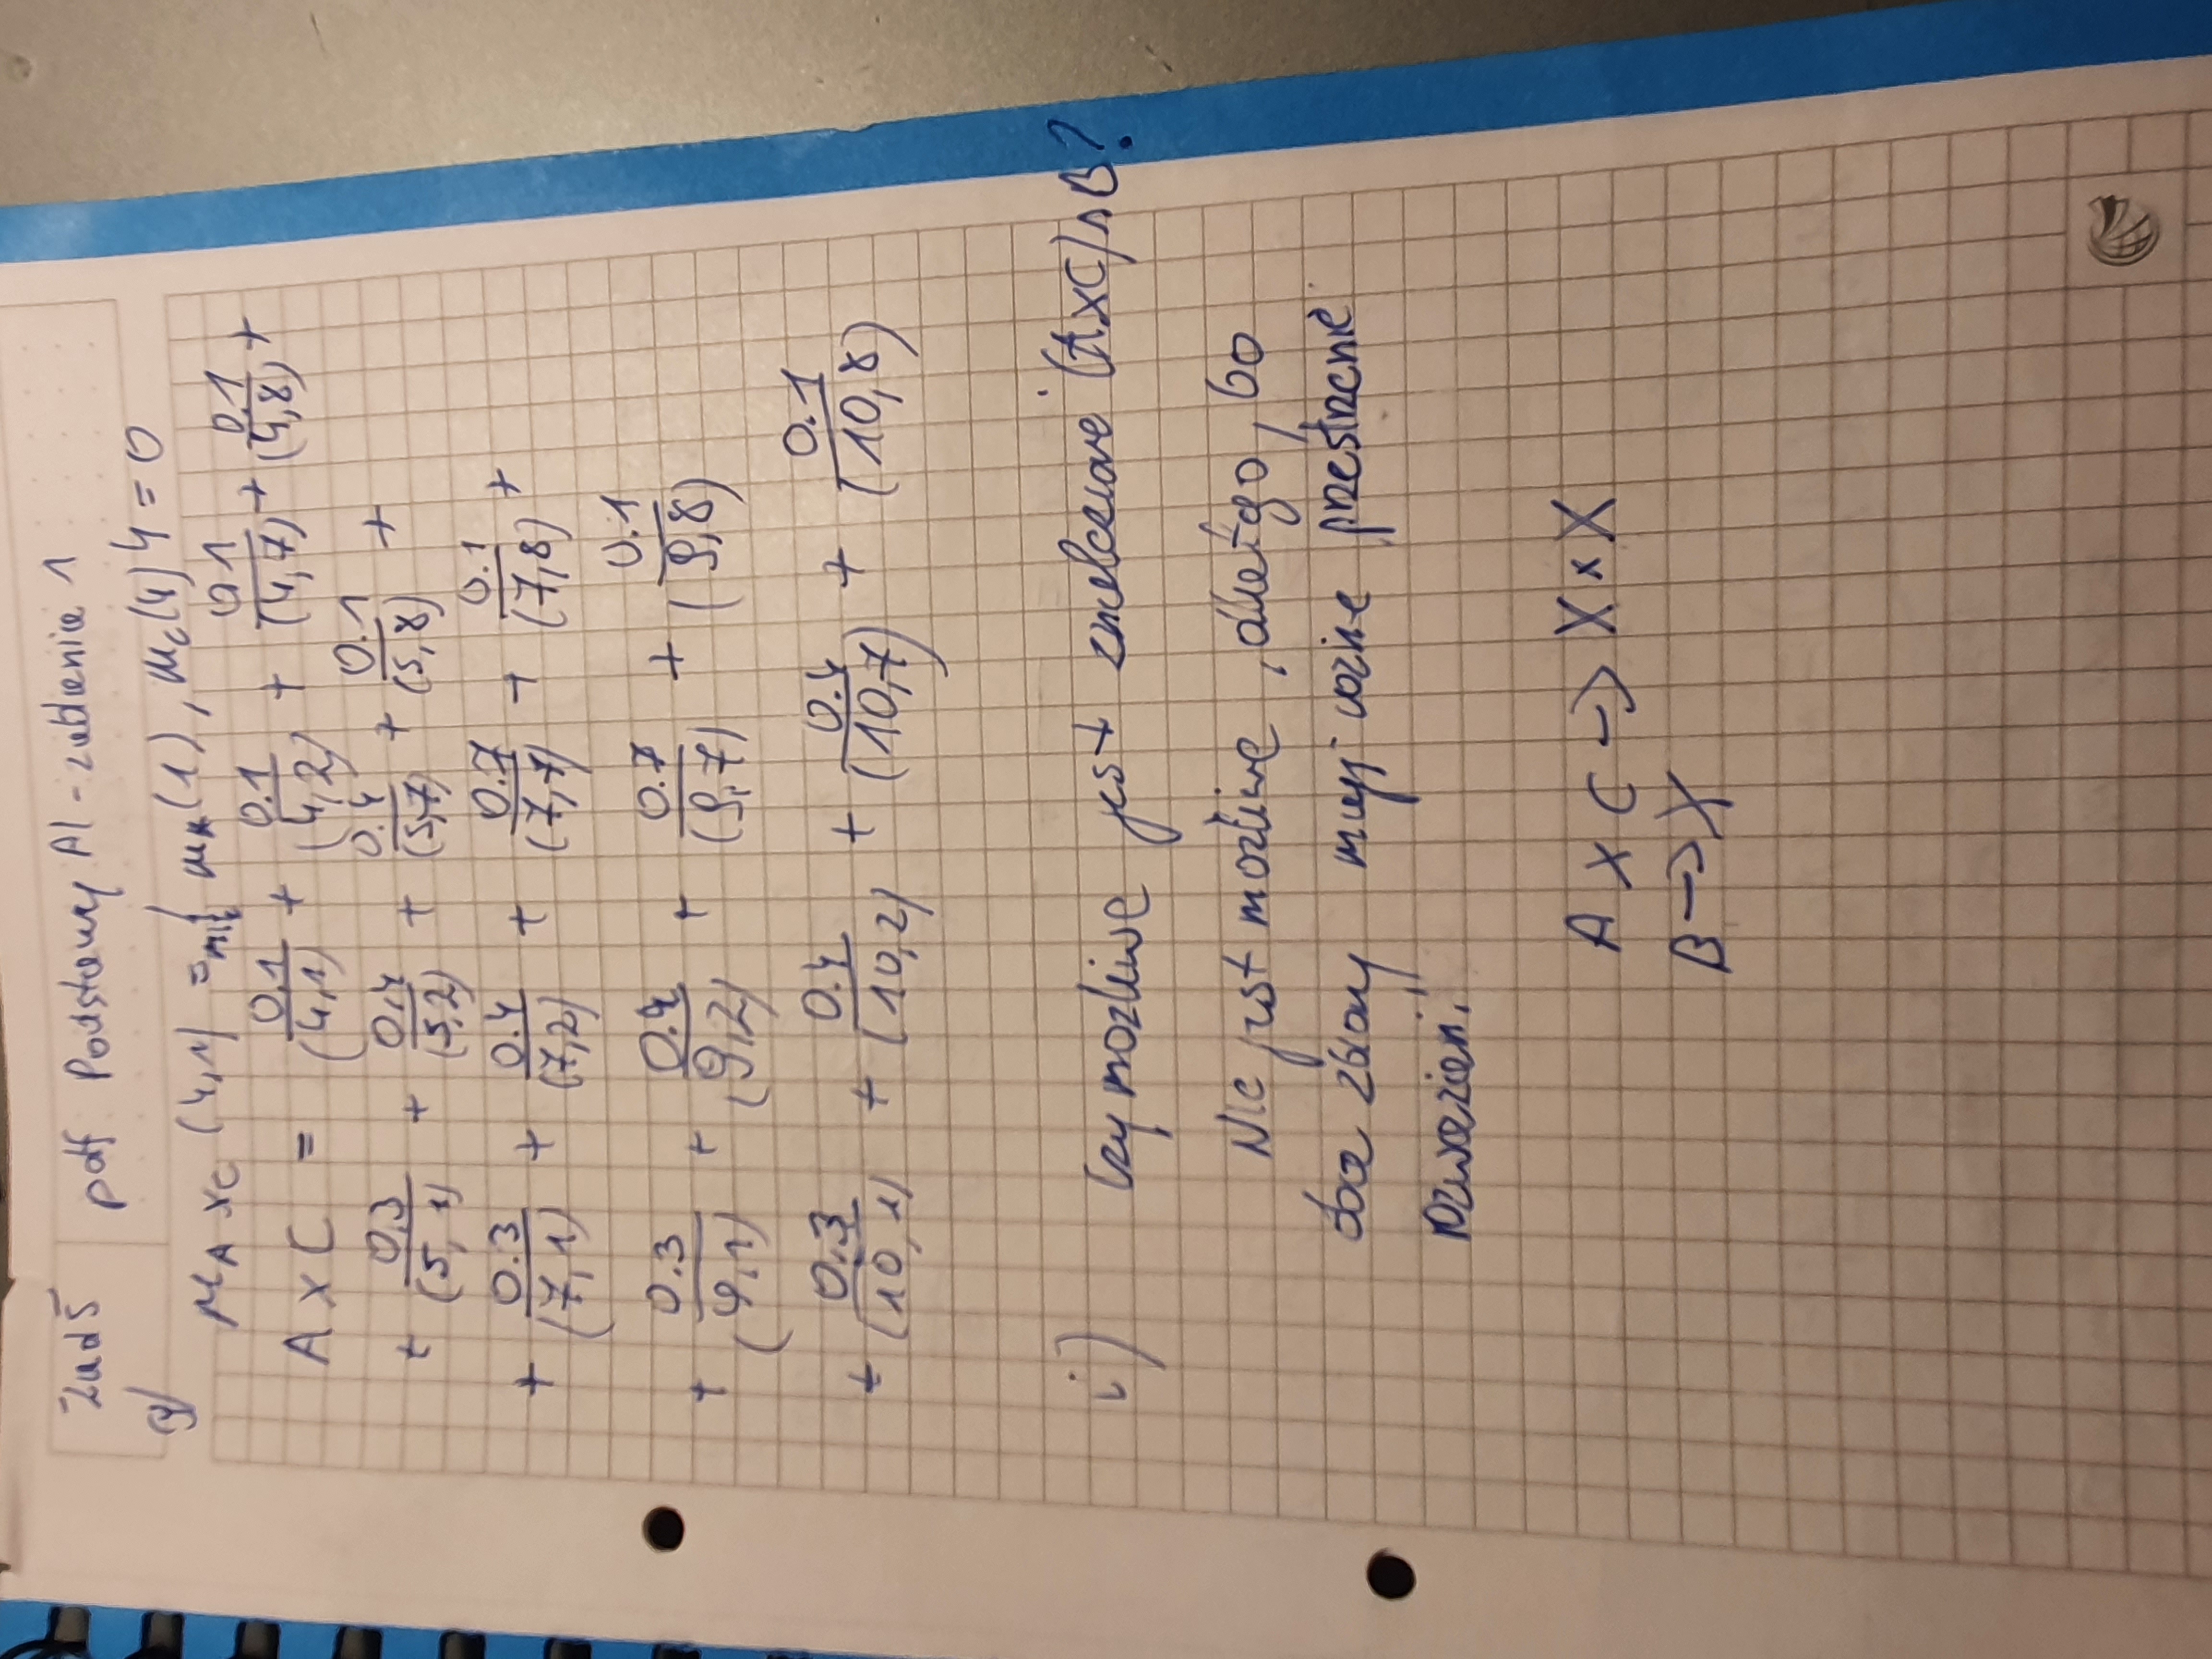 Zad 5 pdf Podstawy AI - zadania 1
g)
μA×C (4,1) = min{ mA(1), mC(4)} = 0
A × C = 0,1/(4,1) + 0.1/(4,2) + 0,1/(4,7) + 0.1/(4,8) +
+ 0,3/(5,1) + 0,4/(5,2) + 0.4/(5,7) + 0.1/(5,8) +
+ 0.3/(7,1) + 0.4/(7,2) + 0.7/(7,7) + 0.1/(7,8) +
+ 0.3/(9,1) + 0.4/(9,2) + 0.7/(9,7) + 0.1/(9,8)
+ 0.3/(10,1) + 0.4/(10,2) + 0.4/(10,7) + 0.1/(10,8)
i) Czy możliwe jest znalezienie (A×C)∩B?
Nie jest możliwe, dlatego, bo
oba zbiory mają różne przestrzenie
rozważań.
A × C → X × X
B → X